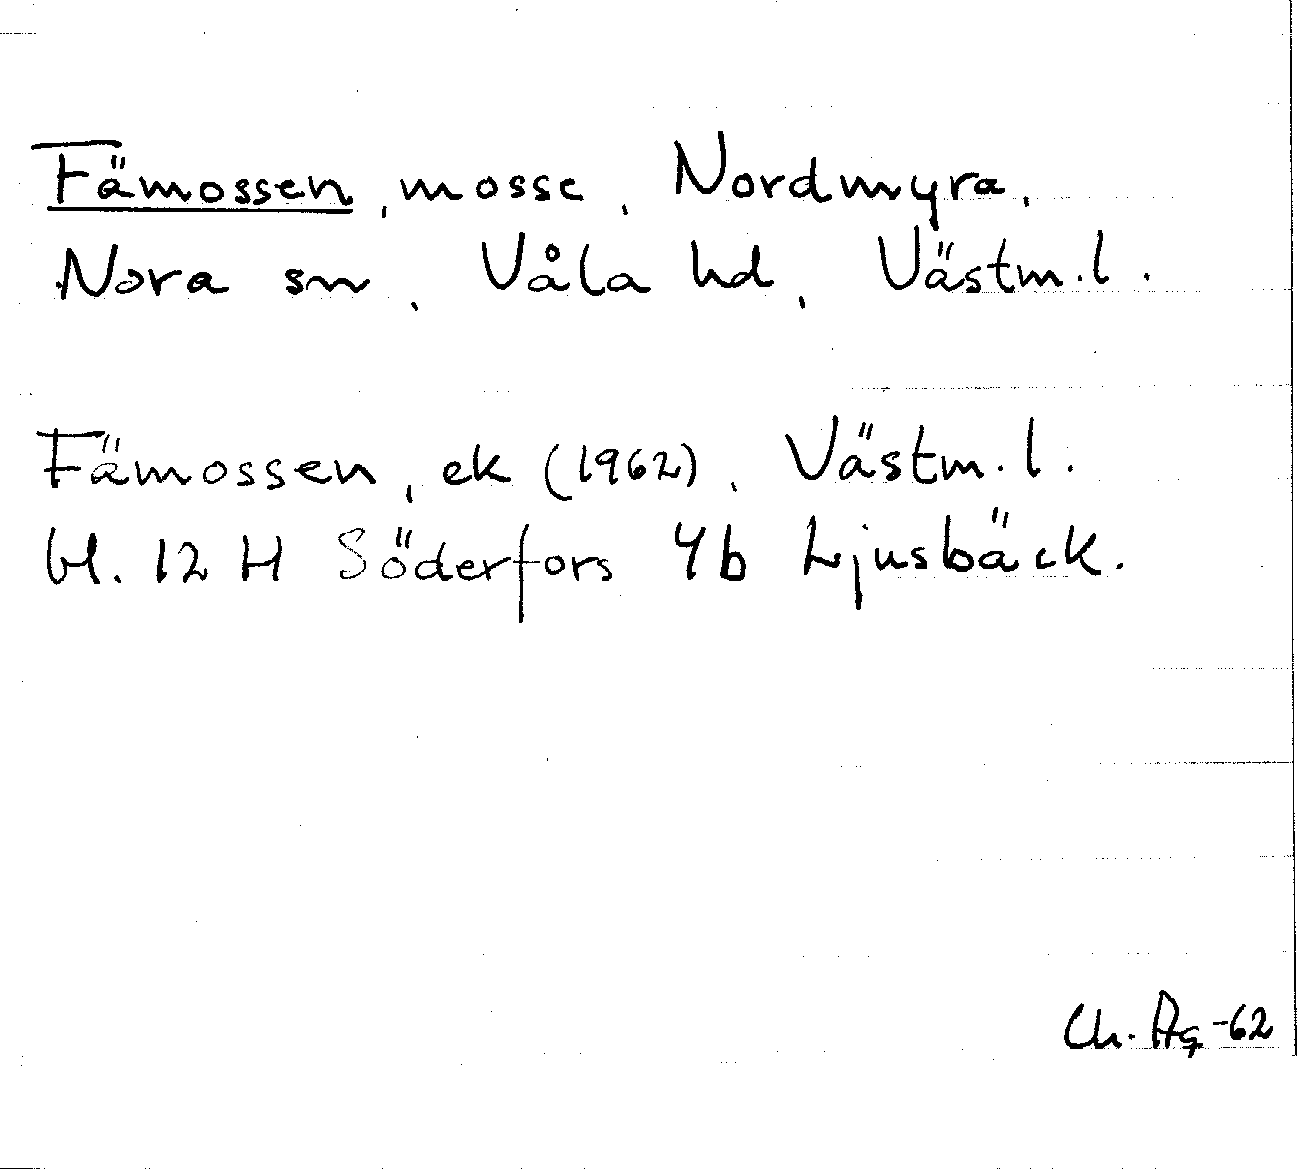 Fämossen, mosse, Nordmyra,
Nora sn, Våla hd, Västm.l.
Fämossen, ek (1962), Västm.l.
bl. 12 H Söderfors 4b Ljusbäck.
Ch. Ag -62